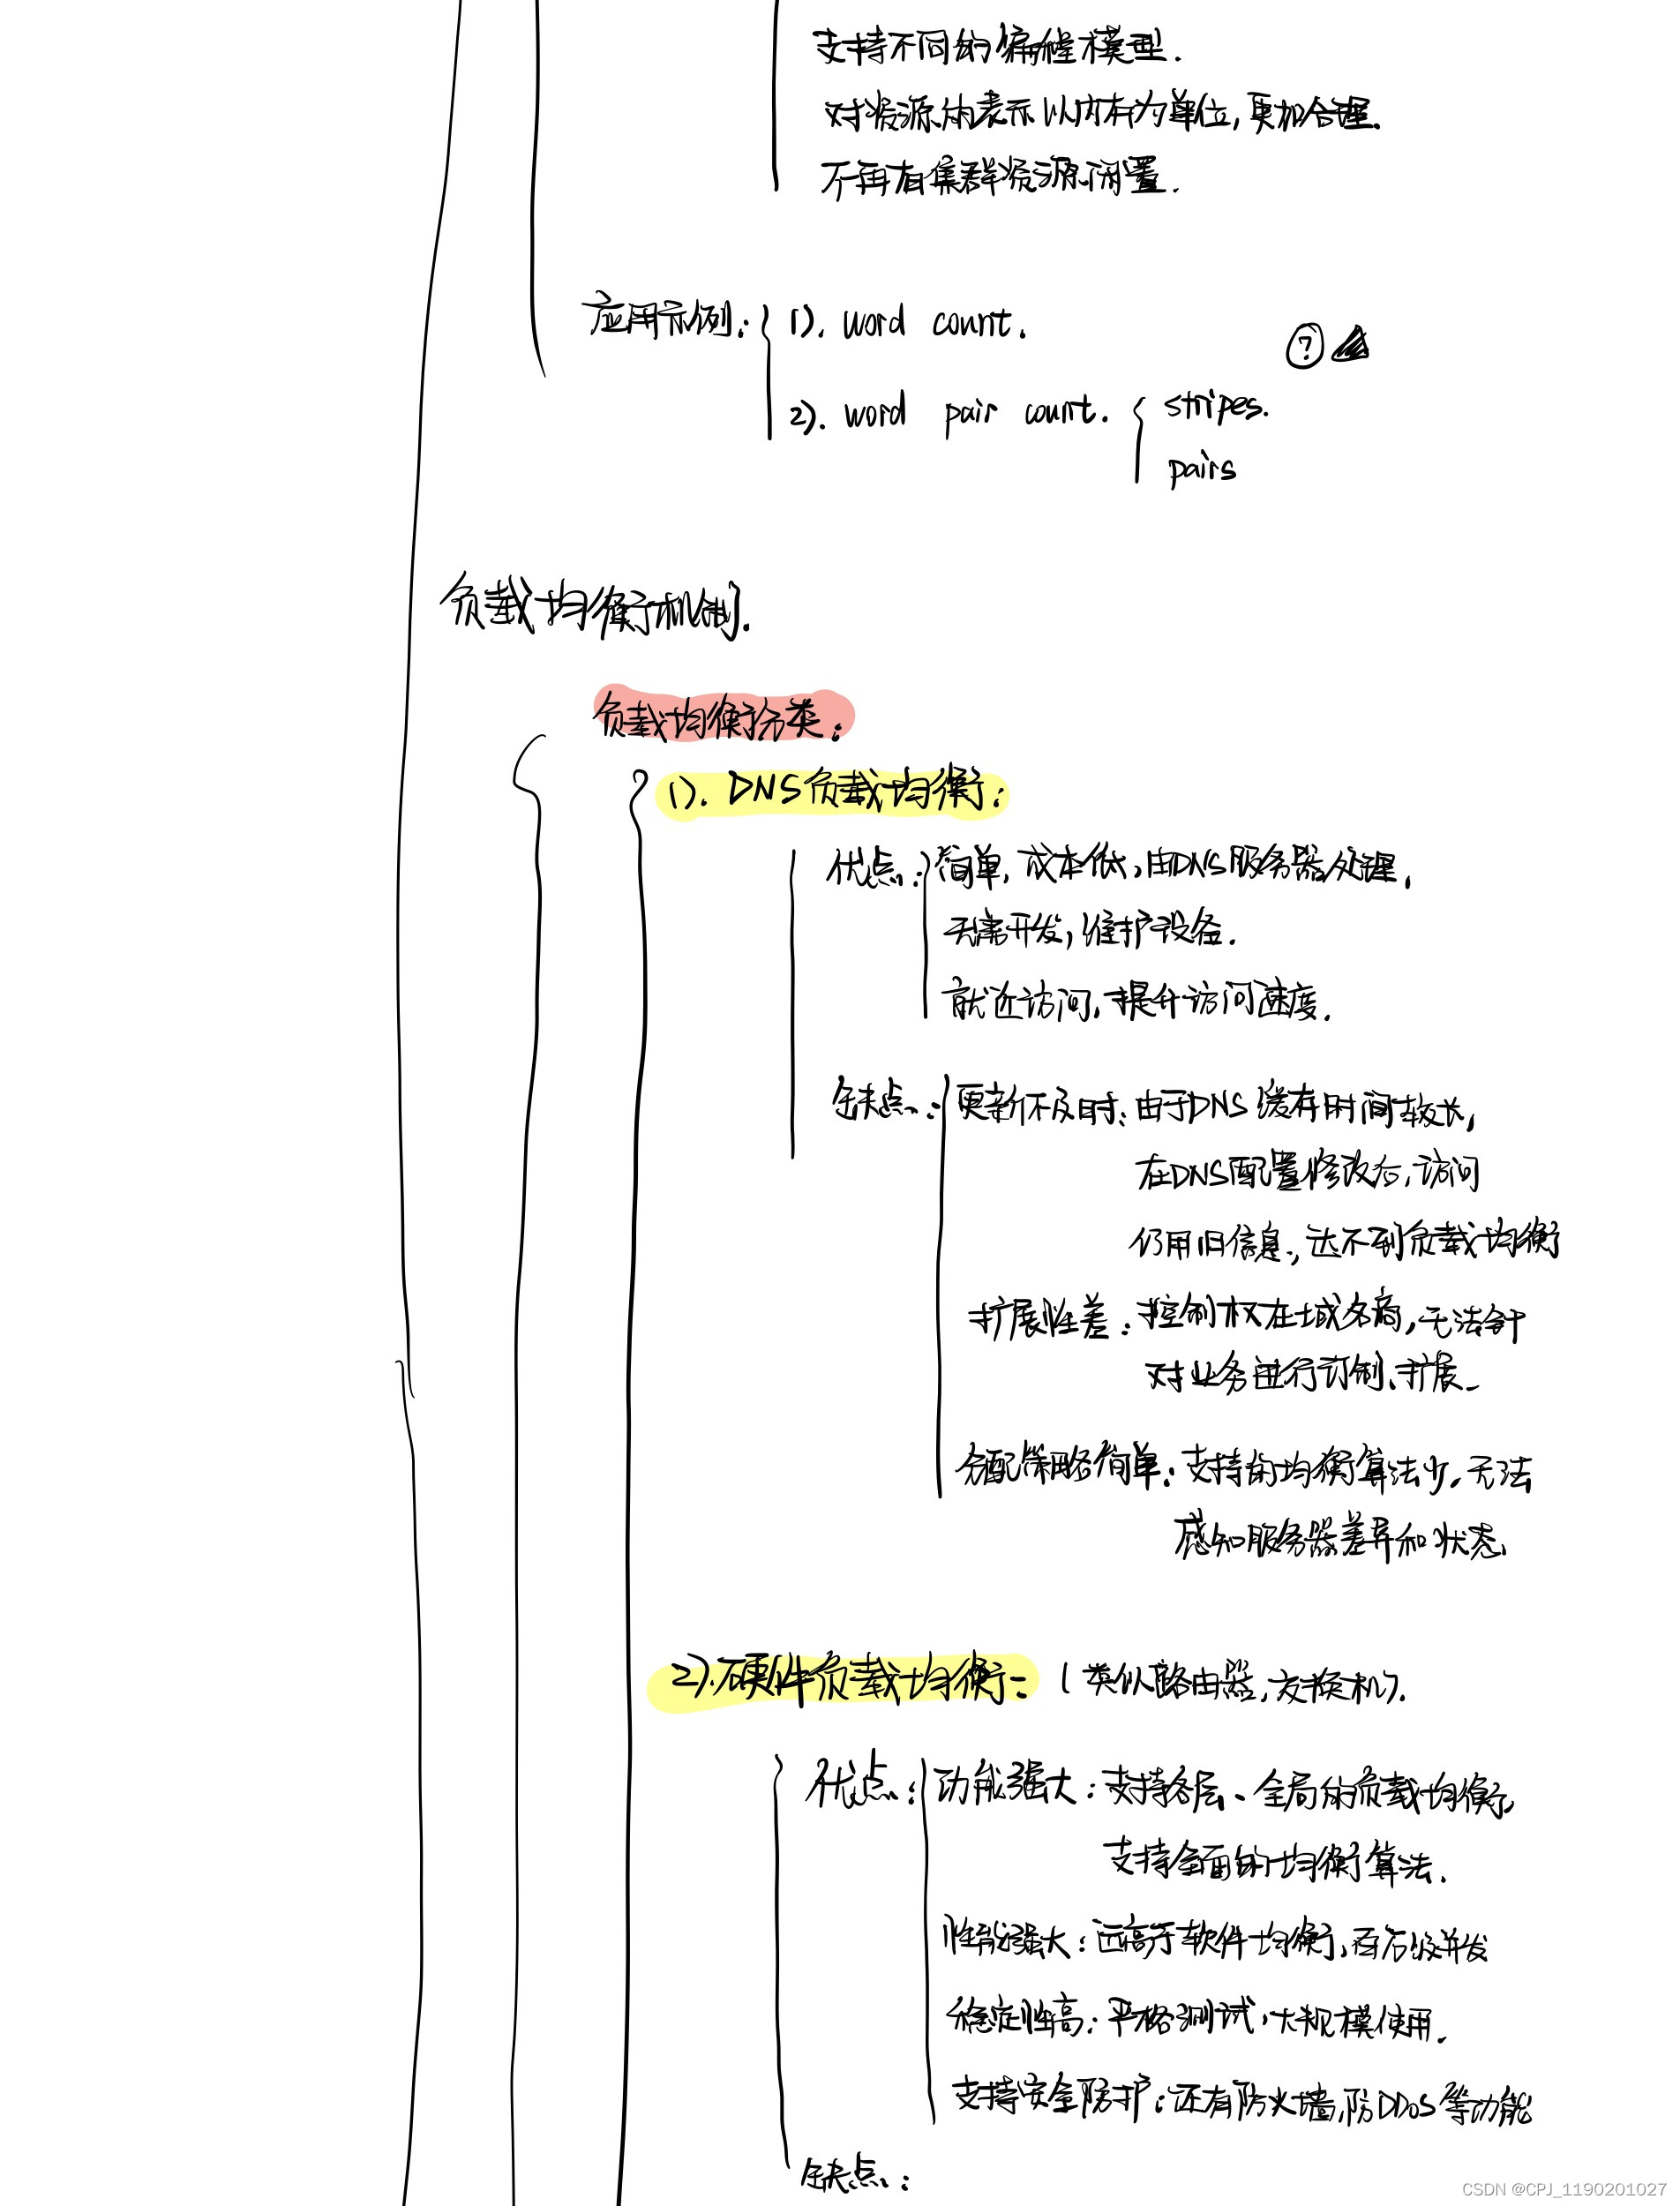 支持不同的编程模型.
对资源的表示以内存为单位,更加合理.
不再有集群资源闲置.
应用示例: 1). word count.
?
2). word pair count. stripes.
pairs
负载均衡机制.
负载均衡分类:
1). DNS负载均衡:
优点: 简单,成本低,由DNS服务器处理,
无需开发,维护设备.
就近访问,提升访问速度.
缺点: 更新不及时: 由于DNS缓存时间较长,
在DNS配置修改后,访问
仍用旧信息,达不到负载均衡
扩展性差: 控制权在域名商,无法针
对业务进行订制、扩展.
分配策略简单: 支持的均衡算法少,无法
感知服务器差异和状态.
2).硬件负载均衡: (类似路由器,交换机).
优点: 功能强大: 支持各层、全局的负载均衡,
支持全面的均衡算法.
性能强大: 远高于软件均衡,百万级并发
稳定性高: 严格测试,大规模使用.
支持安全防护: 还有防火墙,防DDoS等功能
缺点:
CSDN @CPJ_1190201027